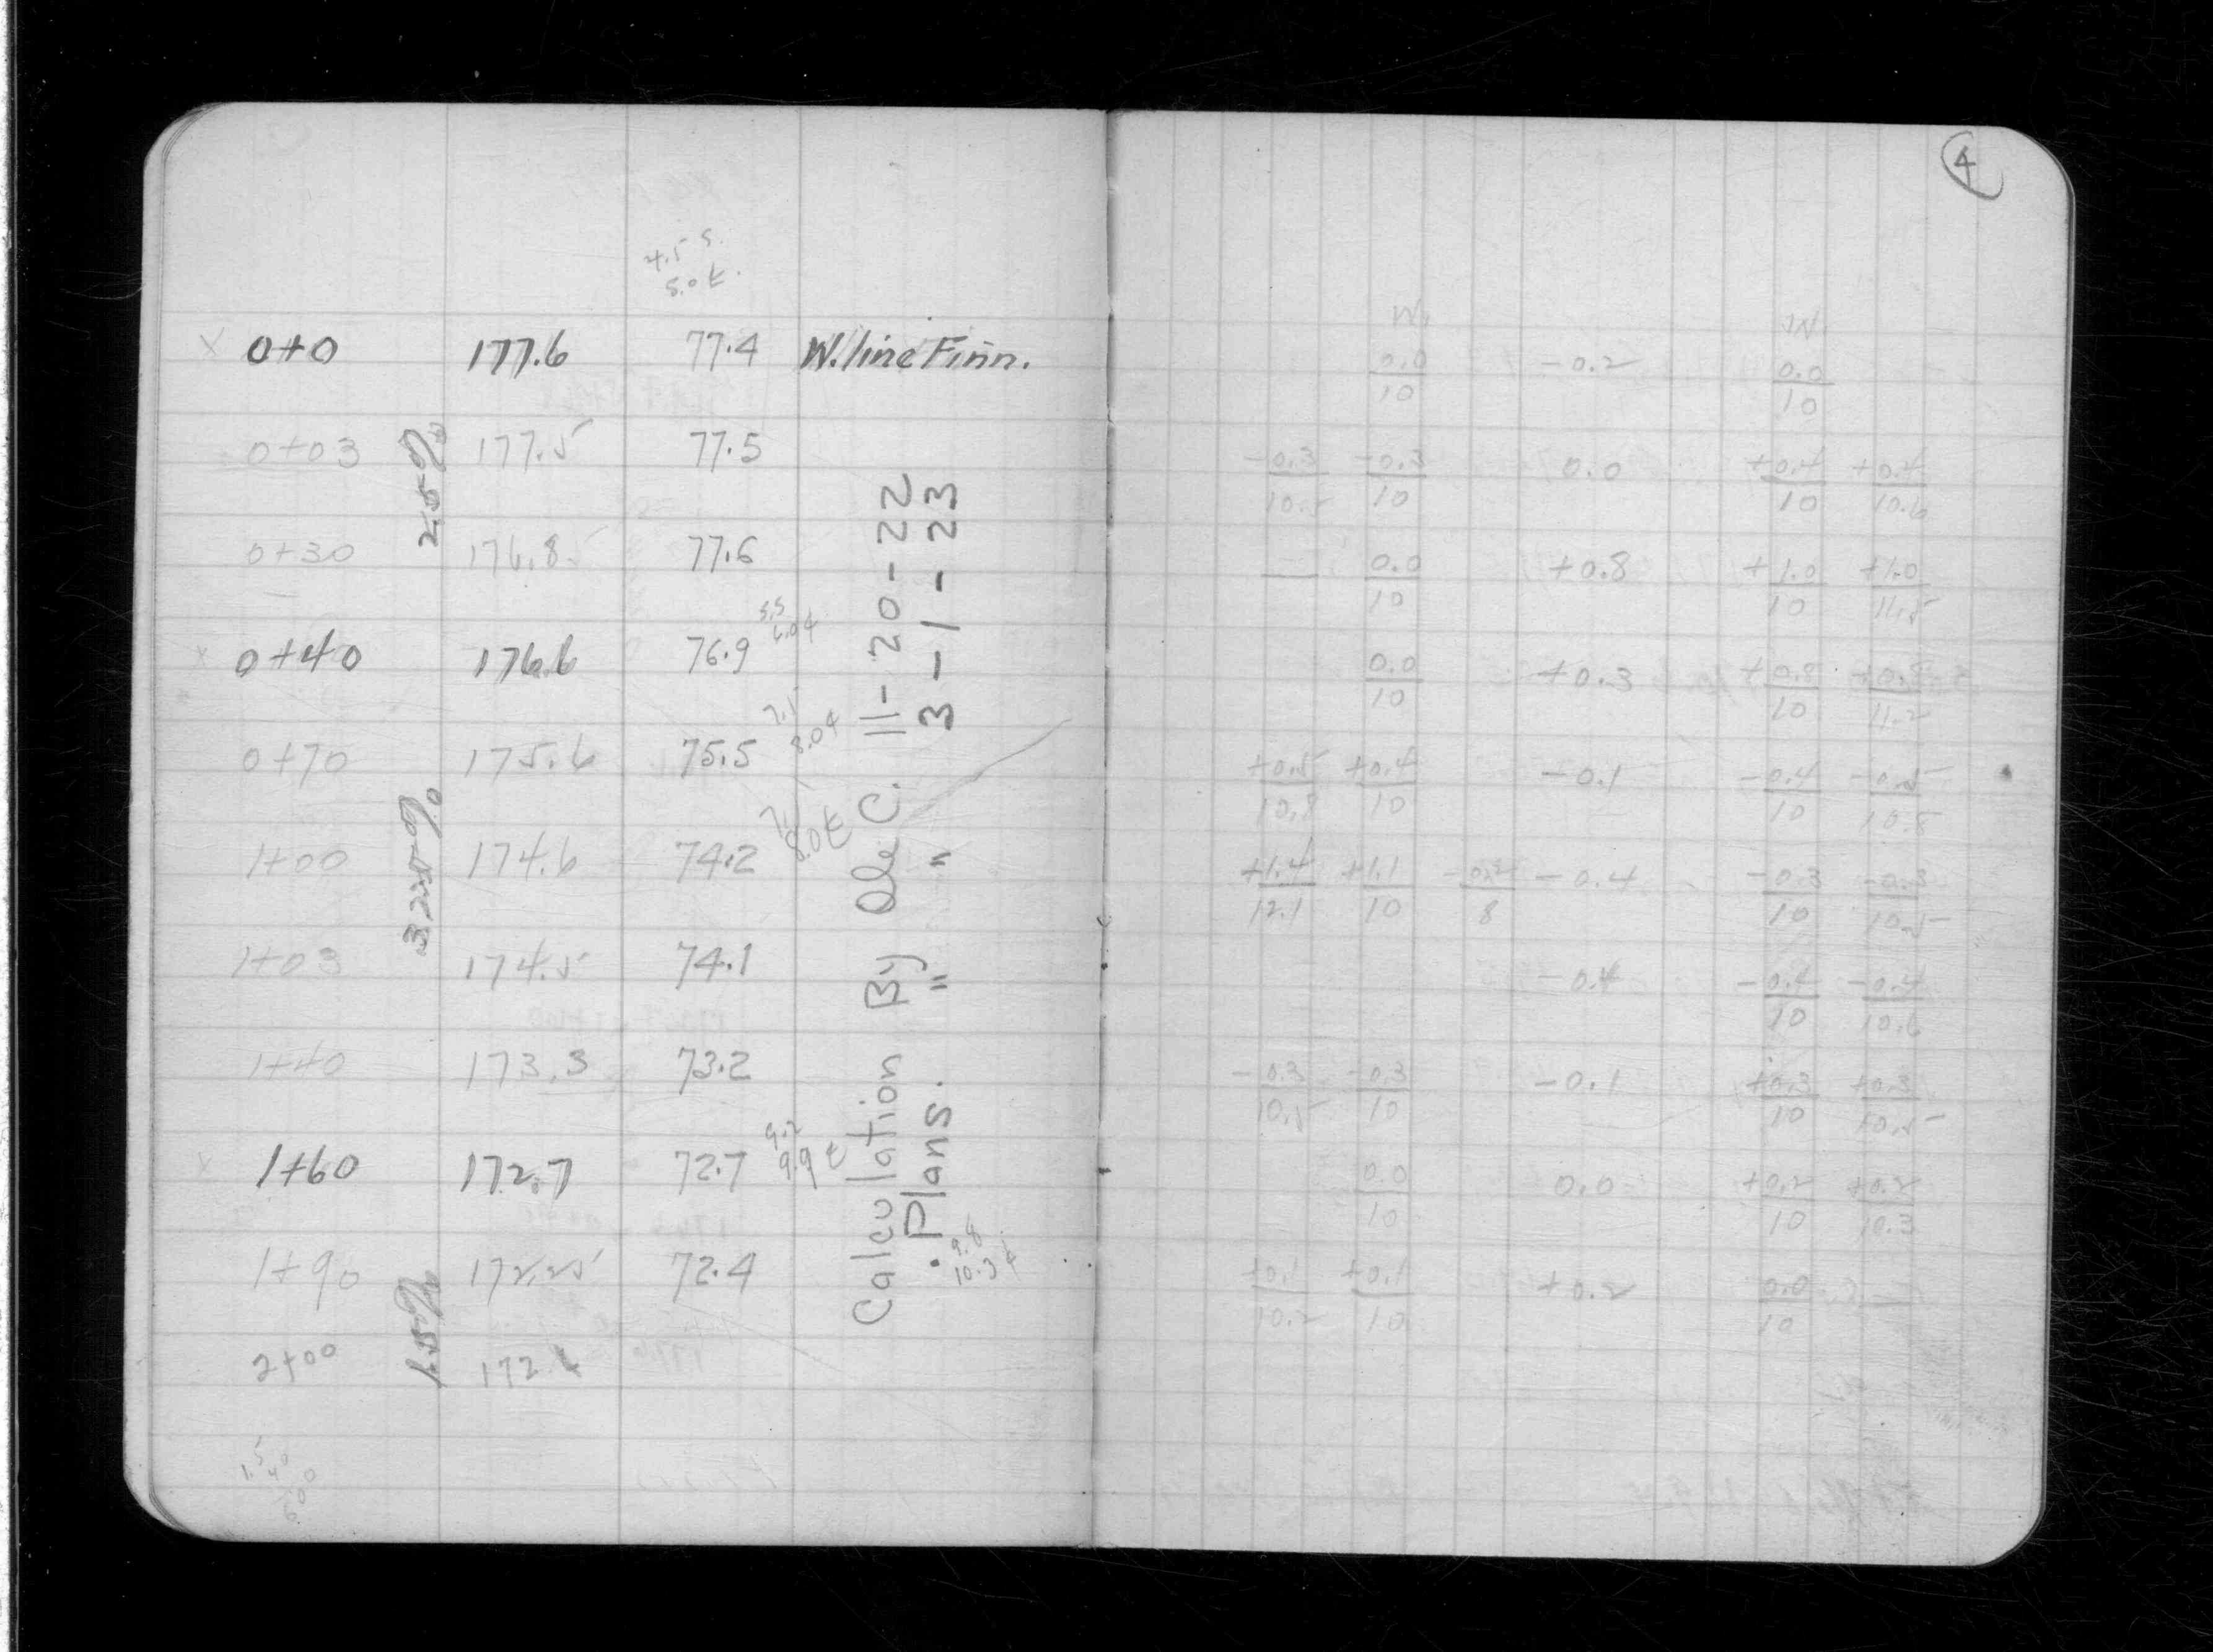 4.5 S.
5.0 E.
x 0+0 177.6 77.4 W. line Finn.
0+03 177.5 77.5
2.5%
0+30 176.8 77.6
x 0+40 176.6 76.9
0+70 175.6 75.5
1+00 174.6 74.2
1+03 174.5 74.1
1+40 173.3 73.2
x 1+60 172.7 72.7 9.2
9.9 E
1+90 172.25 72.4
1.5%
2+00 172.1
Calculation By Ole C. 11-20-22
Plans. " " 3-1-23
4
0.0 -0.2 0.0
10 10
-0.3 -0.3 0.0 +0.4 +0.4
10.5 10 10 10.6
— 0.0 +0.8 +1.0 +1.0
10 10 11.5
0.0 +0.3 +0.8 +0.8
10 10 11.2
+0.5 +0.4 -0.1 -0.4 -0.5
10.8 10 10 10.8
+1.4 +1.1 -0.2 -0.4 -0.3 -0.3
12.1 10 8 10 10.5
-0.4 -0.4 -0.4
10 10.6
-0.3 -0.3 -0.1 +0.3 +0.3
10.5 10 10 10.5
0.0 0.0 +0.2 +0.2
10 10 10.3
+0.1 +0.1 +0.2 0.0 —
10.2 10 10